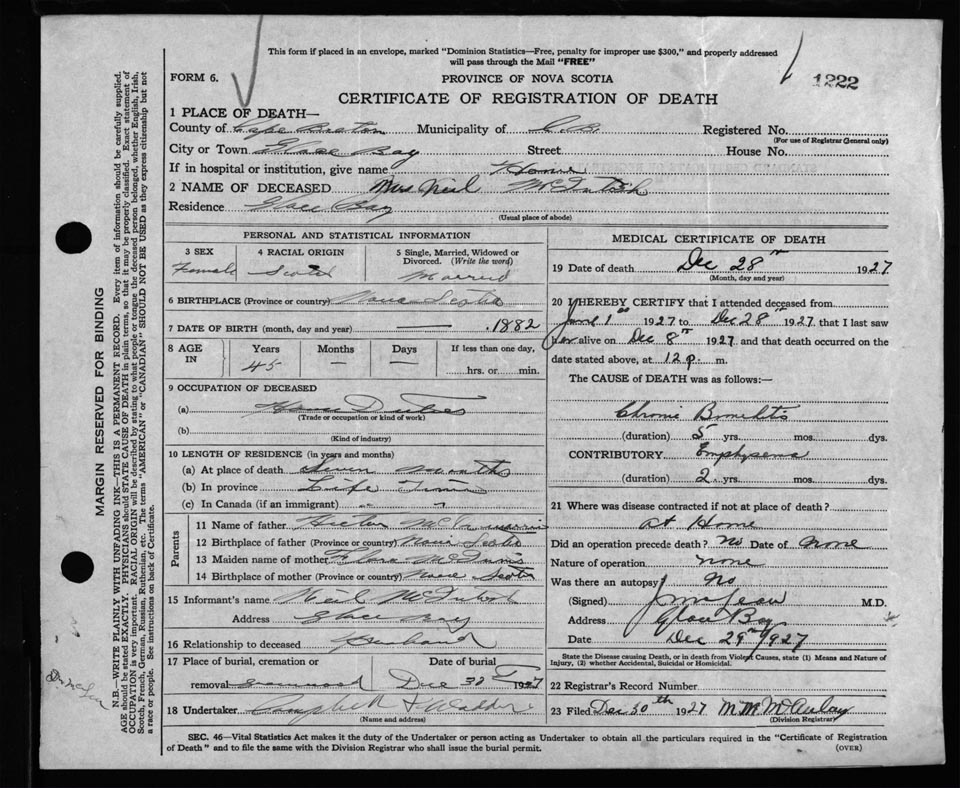 This form if placed in an envelope, marked "Dominion Statistics—Free, penalty for improper use $300," and properly addressed
will pass through the Mail "FREE"
FORM 6.
PROVINCE OF NOVA SCOTIA
1222
CERTIFICATE OF REGISTRATION OF DEATH
1 PLACE OF DEATH—
County of Cape Breton Municipality of C.B. Registered No.
(For use of Registrar General only)
City or Town Glace Bay Street House No.
If in hospital or institution, give name Home
2 NAME OF DECEASED Mrs Neil McIntosh
Residence Glace Bay
(Usual place of abode)
PERSONAL AND STATISTICAL INFORMATION
3 SEX 4 RACIAL ORIGIN 5 Single, Married, Widowed or
Divorced. (Write the word)
Female Scotch Married
6 BIRTHPLACE (Province or country) Nova Scotia
7 DATE OF BIRTH (month, day and year) — 1882
8 AGE IN Years Months Days If less than one day,
45 — — hrs. or min.
9 OCCUPATION OF DECEASED
(a) House Duties
(Trade or occupation or kind of work)
(b)
(Kind of industry)
10 LENGTH OF RESIDENCE (in years and months)
(a) At place of death Seven Months
(b) In province Life Time
(c) In Canada (if an immigrant) - -
Parents
11 Name of father Hector
12 Birthplace of father (Province or country) Nova Scotia
13 Maiden name of mother Flora McInnis
14 Birthplace of mother (Province or country) Nova Scotia
15 Informant's name Neil McIntosh
Address Glace Bay
16 Relationship to deceased Husband
17 Place of burial, cremation or Date of burial
removal Greenwood Dec 30 1927
18 Undertaker Campbell &
(Name and address)
MEDICAL CERTIFICATE OF DEATH
19 Date of death Dec 28th 1927
(Month, day and year)
20 I HEREBY CERTIFY that I attended deceased from
June 1st 1927 to Dec 28th 1927 that I last saw
her alive on Dec 8th 1927 and that death occurred on the
date stated above, at 12 p. m.
The CAUSE of DEATH was as follows:
Chronic Bronchitis
(duration) 5 yrs. mos. dys.
CONTRIBUTORY Emphysema
(duration) 2 yrs. mos. dys.
21 Where was disease contracted if not at place of death?
at Home
Did an operation precede death? No Date of None
Nature of operation none
Was there an autopsy? No
(Signed) M.D.
Address Glace Bay
Date Dec 29th 1927
State the Disease causing Death, or in death from Violent Causes, state (1) Means and Nature of
Injury, (2) whether Accidental, Suicidal or Homicidal.
22 Registrar's Record Number
23 Filed Dec 30th 1927 M.M. McAulay
(Division Registrar)
SEC. 46—Vital Statistics Act makes it the duty of the Undertaker or person acting as Undertaker to obtain all the particulars required in the "Certificate of Registration
of Death" and to file the same with the Division Registrar who shall issue the burial permit.
(OVER)
MARGIN RESERVED FOR BINDING
N.B.—WRITE PLAINLY WITH UNFADING INK—THIS IS A PERMANENT RECORD. Every item of information should be carefully supplied.
AGE should be stated EXACTLY. PHYSICIANS should STATE CAUSE OF DEATH in plain terms, so that it may be properly classified. Exact statement of
OCCUPATION is very important. RACIAL ORIGIN will be described by stating to what people or tongue the deceased person belonged, whether English, Irish,
Scotch, French, German, Russian, Ruthenian, etc. The terms "AMERICAN" or "CANADIAN" SHOULD NOT BE USED as they express citizenship but not
a race or people. See instructions on back of Certificate.